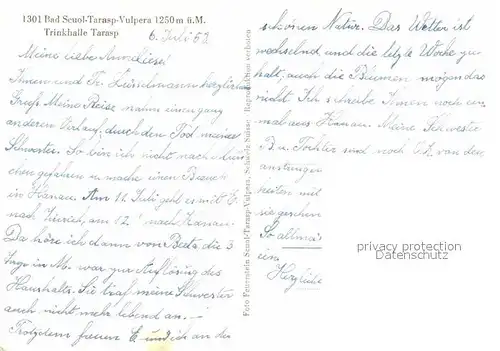 1301 Bad Scuol-Tarasp-Vulpera 1250 m ü.M.
Trinkhalle Tarasp
6. Juli 53
Meine liebe Anneliese!
Ihnen und Fr.
Gruß. Meine Reise nahm einen ganz
anderen Verlauf, durch den Tod meiner
Schwester. So bin ich nicht nach Mün-
chen gefahren u. mache einen Besuch
in Hanau. Am 11. Juli geht es mit E.
nach Zürich, am 12. nach Hanau.
Da höre ich dann vom Beat, die 3
Tage in M. war zur Auflösung des
Haushalts. Sie traf meine Schwester
auch nicht mehr lebend an. -
Trotzdem freuen E. und ich an der
Foto Feuerstein Scuol-Tarasp-Vulpera, Schweiz-Suisse. Reproduktion verboten
schönen Natur. Das Wetter ist
wechselnd und die letzte Woche
halt, auch die mögen das
nicht. Ich schreibe Ihnen noch ein-
mal aus Hanau. Meine Schwester
B. u. Tochter sind noch von den
anstrengen
heiten mit
So
ein
Herzliche
privacy protection
Datenschutz